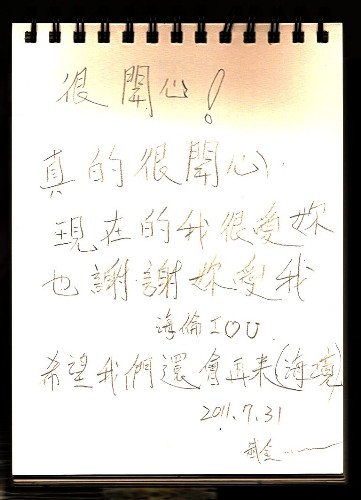 很開心!
真的很開心
現在的我很愛妳
也謝謝妳愛我
海倫 I♡U
希望我們還會再来(海境)
2011.7.31